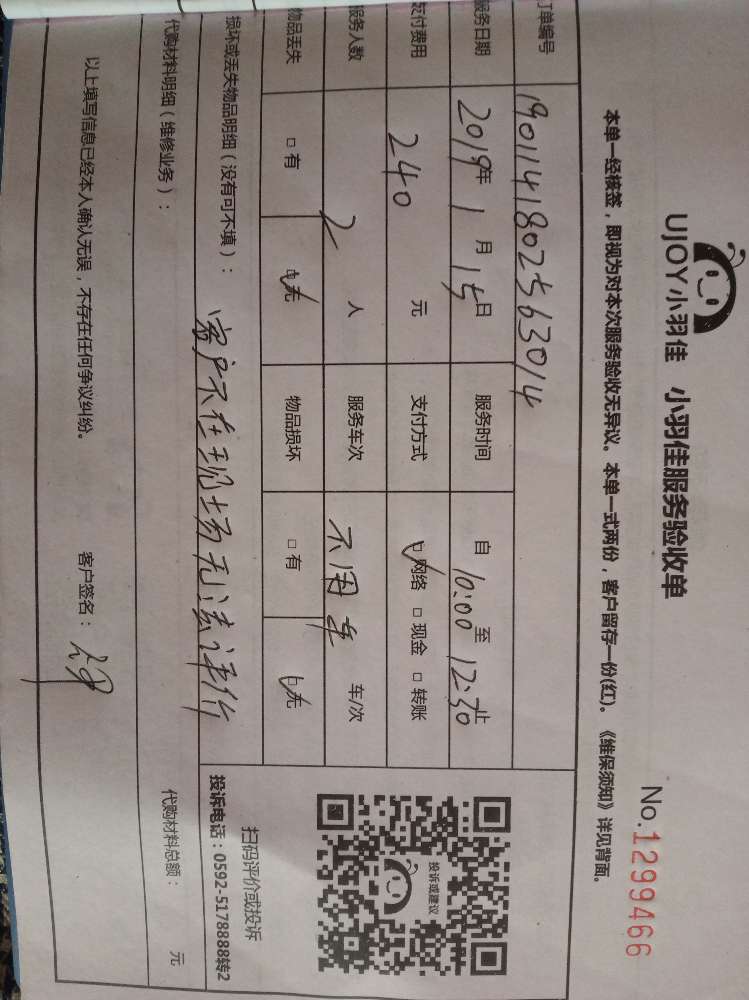 UJOY小羽佳 小羽佳服务验收单
No.1299466
本单一经核签，即视为对本次服务验收无异议。本单一式两份，客户留存一份(红)。《维保须知》详见背面。
订单编号 1901141802563014
服务日期 2019年 1月 15日 服务时间 自 10:00 至 12:30 止
支付费用 240 元 支付方式 网络 现金 转账
服务人数 2 人 服务车次 不用车 车/次
物品丢失 有 无 物品损坏 有 无
损坏或丢失物品明细（没有可不填）： 客户不在现场无法评价
投诉或建议
扫码评价或投诉
投诉电话：0592-5178888转2
代购材料明细（维修业务）： 代购材料总额： 元
以上填写信息已经本人确认无误，不存在任何争议纠纷。 客户签名：